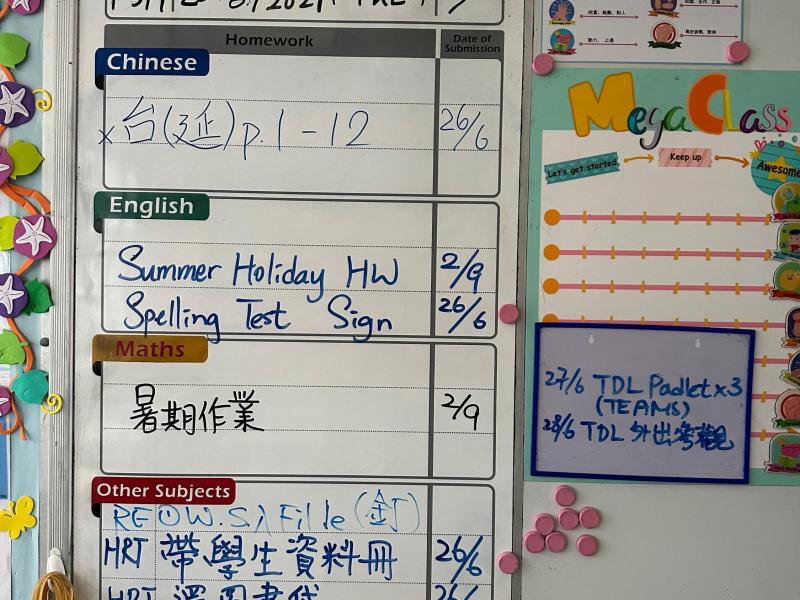 Homework
Date of
Submission
Chinese
x 台(延) p.1-12 26/6
English
Summer Holiday HW 2/9
Spelling Test Sign 26/6
Maths
暑期作業 2/9
Other Subjects
REOW.S1 File (釘)
HRT 帶學生資料冊 26/6
HRT 26/6
Mega Class
Let's get started
Keep up
Awesome
27/6 TDL Padlet x 3
(TEAMS)
28/6 TDL 外出參觀